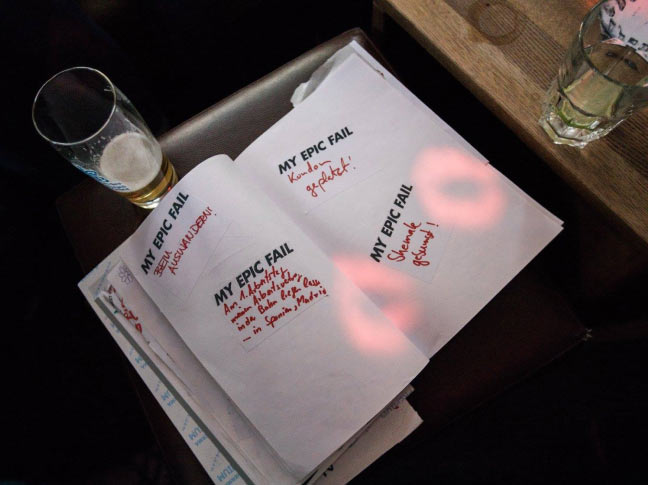 MY EPIC FAIL
BEIM
AUSWANDERN!
MY EPIC FAIL
Am 1. Arbeitstag
meinen Arbeitsvertrag
in der Bahn liegen lassen
... in Spanien, Madrid
MY EPIC FAIL
Kondom
geplatzt!
MY EPIC FAIL
Shemale
gebumst!